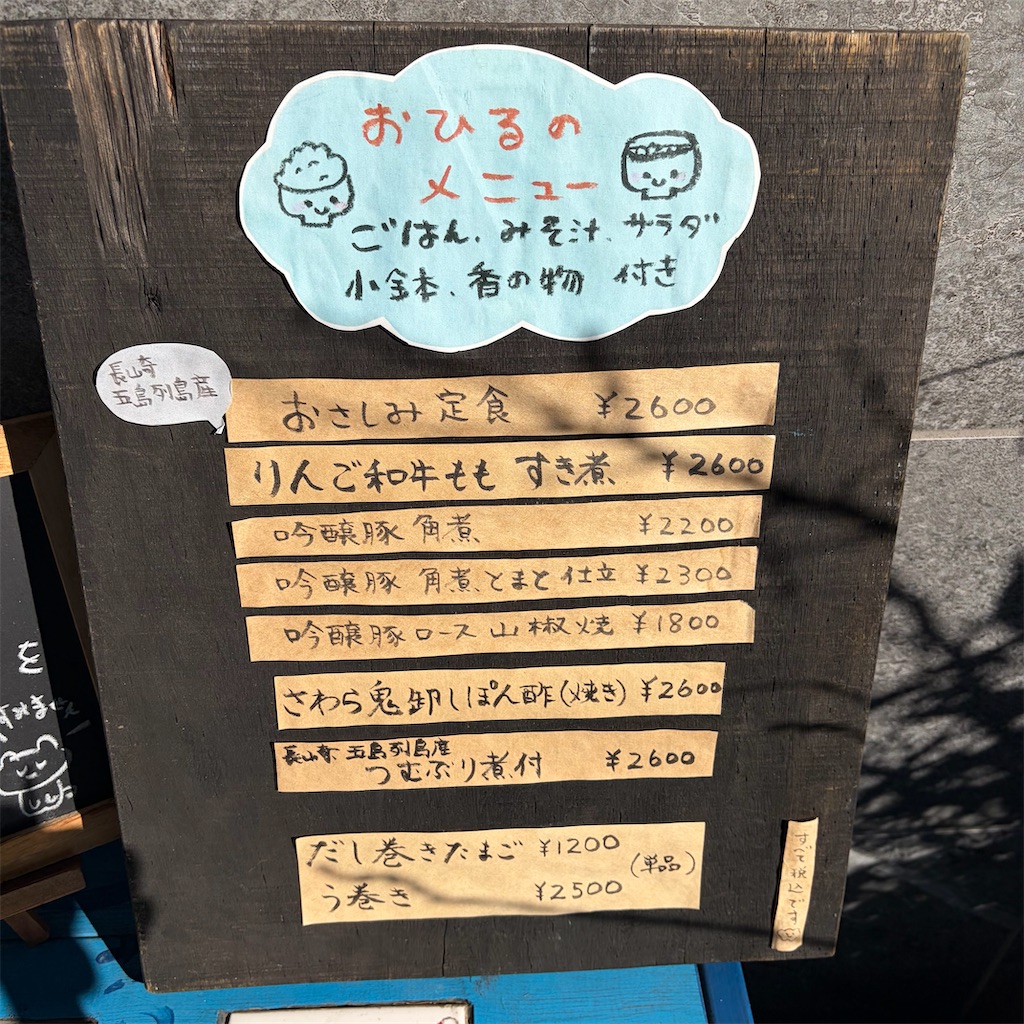 おひるの
メニュー
ごはん、みそ汁、サラダ
小鉢、香の物 付き
長崎
五島列島産
おさしみ定食 ¥2600
りんご和牛もも すき煮 ¥2600
吟醸豚 角煮 ¥2200
吟醸豚 角煮とまと仕立 ¥2300
吟醸豚ロース山椒焼 ¥1800
さわら鬼卸しぽん酢(焼き) ¥2600
長崎 五島列島産
つむぶり煮付 ¥2600
だし巻きたまご ¥1200
う巻き ¥2500
(単品)
すべて税込です
を
すみません